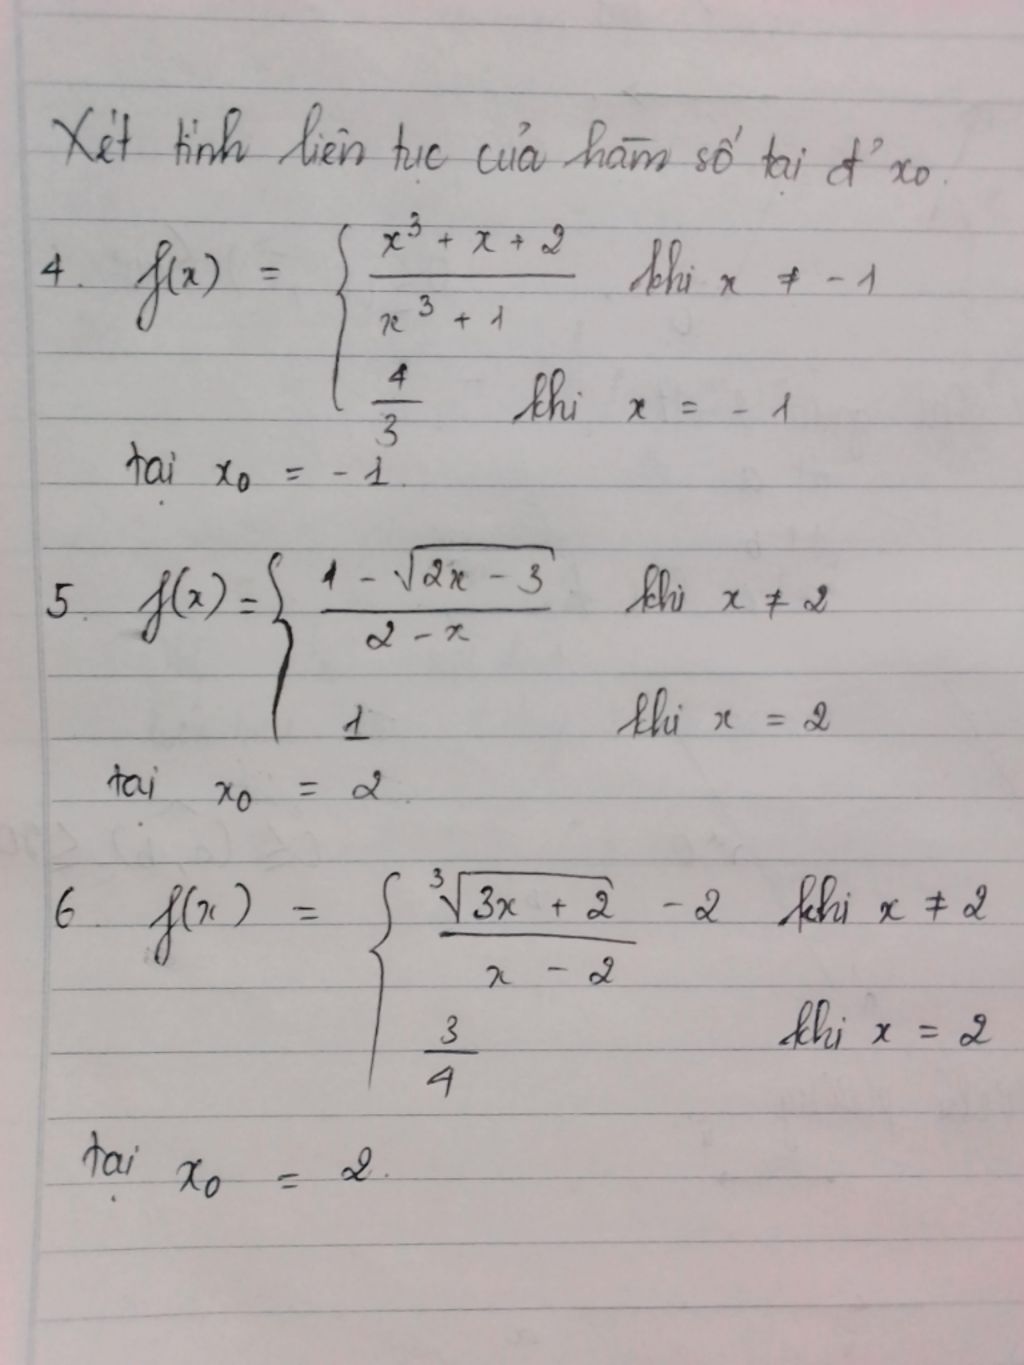 Xét tính liên tục của hàm số tại đ' x₀.
4. f(x) = { (x³ + x + 2)/(x³ + 1) khi x ≠ -1
4/3 khi x = -1
tại x₀ = -1.
5. f(x) = { (1 - √(2x - 3))/(2 - x) khi x ≠ 2
1 khi x = 2
tại x₀ = 2.
6 f(x) = { (∛(3x + 2) - 2)/(x - 2) khi x ≠ 2
3/4 khi x = 2
tại x₀ = 2.